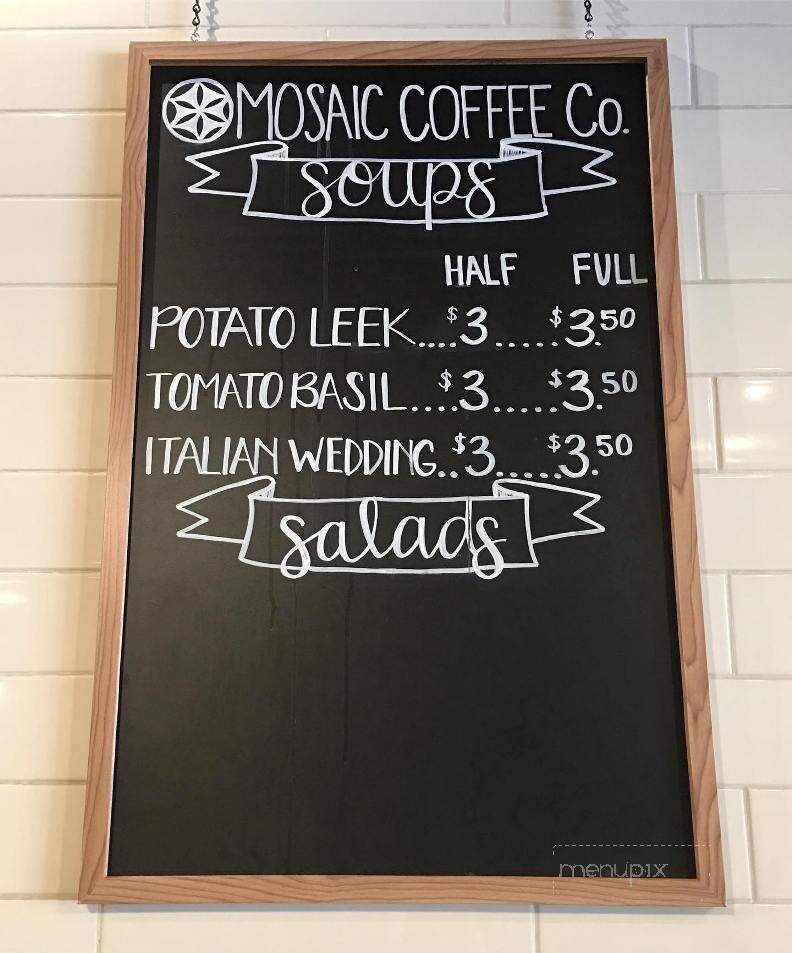 MOSAIC COFFEE Co.
soups
HALF FULL
POTATO LEEK....$3.....$3.50
TOMATO BASIL....$3.....$3.50
ITALIAN WEDDING..$3.....$3.50
salads
menupix